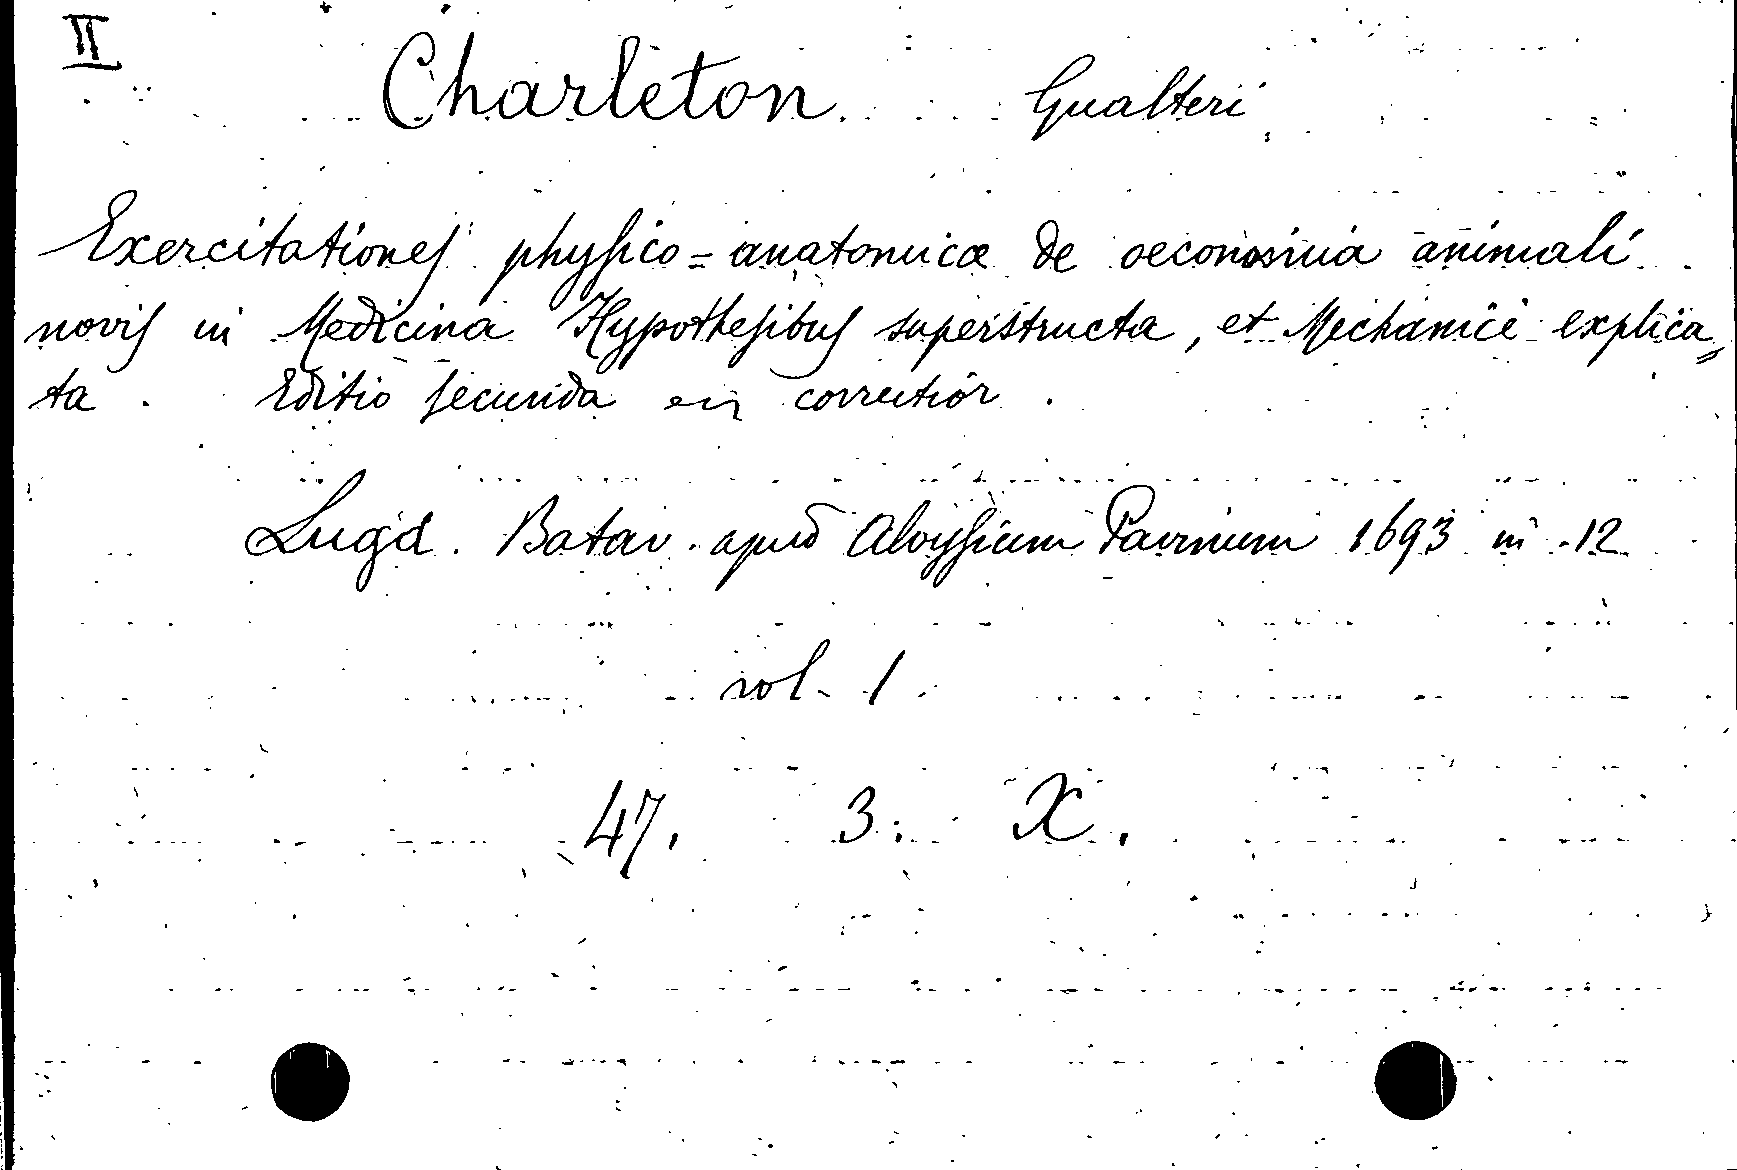 II
Charleton Gualteri
Exercitationes physico=anatomicæ de oeconomia animali
novis in Medicina Hypothesibus superstructa, et Mechanicè explica„
ta. Editio secunda correctior.
Lugd. Batav. apud Aloysium Pavinum 1693 in 12
vol. 1
47. 3. X.